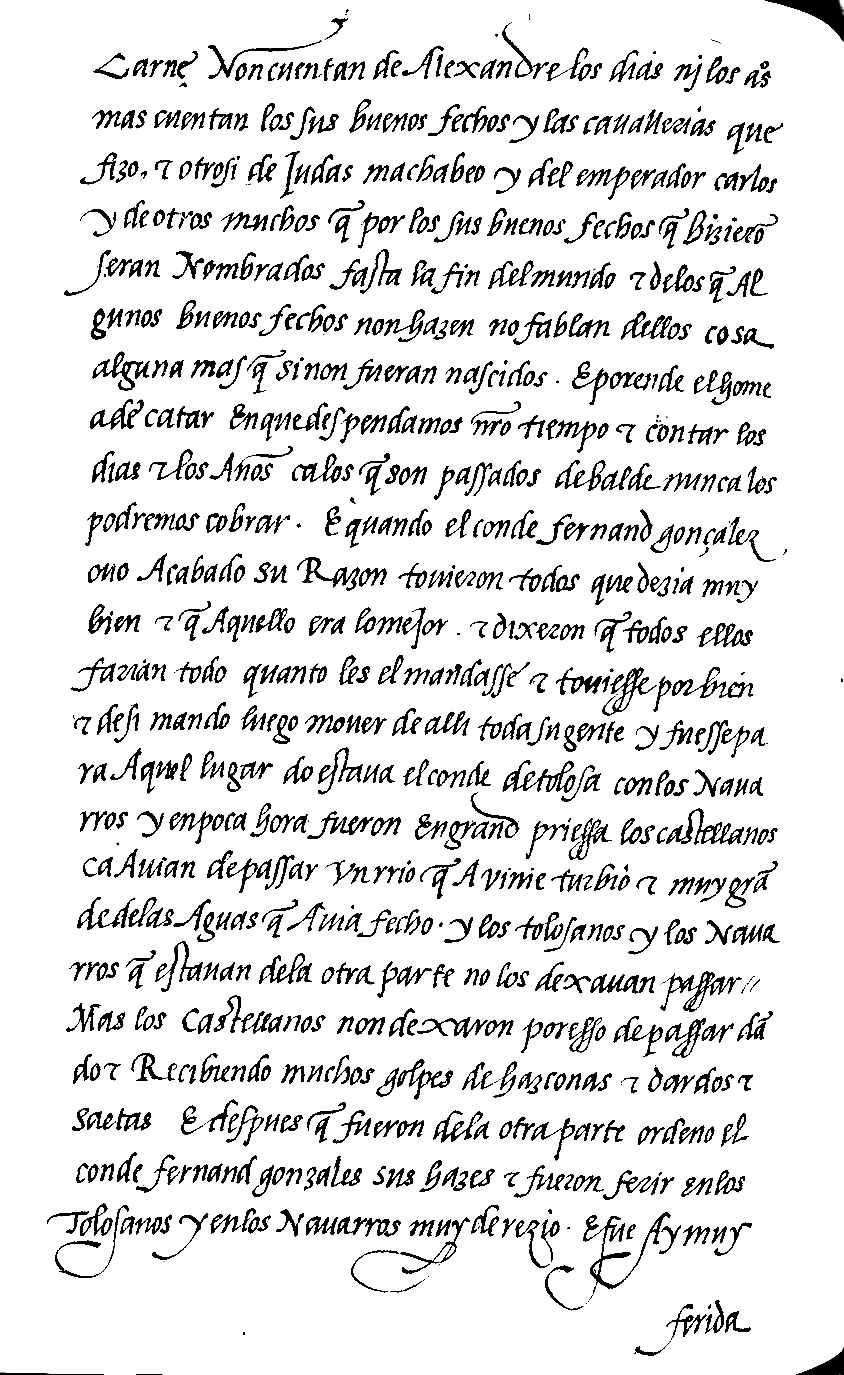 carne Non cuentan de Alexandre los dias nj los aos
mas cuentan los sus buenos fechos y las cauallerias que
fizo, τ otrosi de Judas machabeo y del emperador carlos
y de otros muchos q̃ por los sus buenos fechos q̃ hizierõ
seran Nombrados fasta la fin del mundo τ delos q̃ Al
gunos buenos fechos non hazen no fablan dellos cosa
alguna mas q̃ si non fueran nascidos. E por ende el home
a de catar En que despendamos nr̃o tiempo τ contar los
dias τ los Años ca los q̃ son passados de balde nunca los
podremos cobrar. E quando el conde fernand gonçalez
ouo Acabado su Razon touieron todos que dezia muy
bien τ q̃ Aquello era lo meJor. τ dixeron q̃ todos ellos
farian todo quanto les el mandasse τ touiesse por bien
τ desi mando luego mouer de alli toda su gente y fuesse pa
ra Aquel lugar do estaua el conde de tolosa con los Naua
rros y en poca hora fueron En grand priessa los castellanos
ca Auian de passar vn rrio q̃ A vinie turbio τ muy grã
de de las Aguas q̃ Auia fecho. y los tolosanos y los Naua
rros q̃ estauan de la otra parte no los dexauan passar //
Mas los Castellanos non dexaron por esso de passar dã
do τ Recibiendo muchos golpes de hazconas τ dardos τ
saetas E despues q̃ fueron de la otra parte ordeno el
conde fernand gonzales sus hazes τ fueron ferir En los
Tolosanos y en los Nauarros muy de rezio. E fue Ay muy
ferida